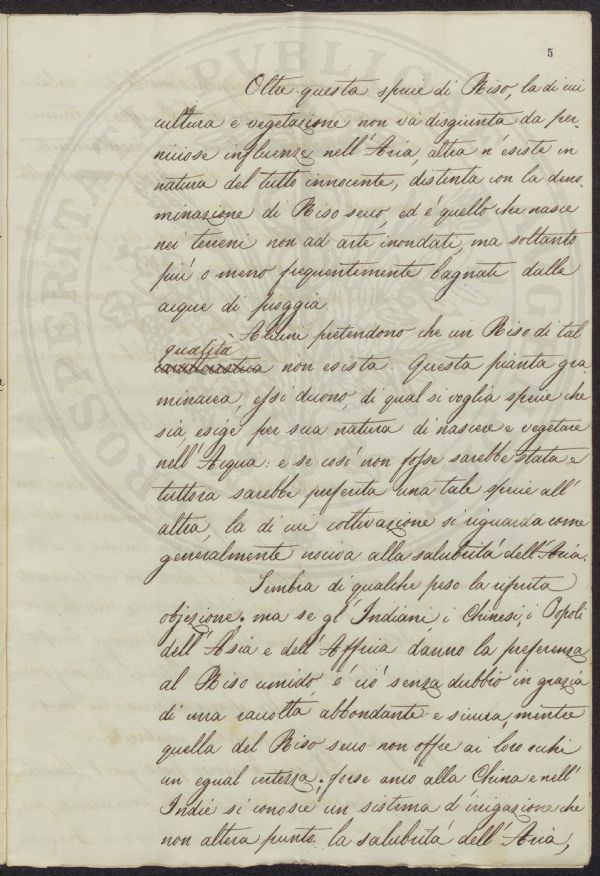 5
Oltre questa specie di Riso, la di cui
cultura e vegetazione non va disgiunta da per-
niciose influenze nell'Aria, altra n'esiste in
natura del tutto innocente, distinta con la deno-
minazione di Riso secco, ed è quello che nasce
nei terreni non ad arte inondati, ma soltanto
più o meno frequentemente bagnati dalle
acque di pioggia.
Alcuni pretendono che un Riso di tal
qualità
caratteristica non esista. Questa pianta gra
minacea, essi dicono, di qual si voglia specie che
sia, esige per sua natura di nascere e vegetare
nell'Acqua: e se così non fosse sarebbe stata e
tuttora sarebbe preferita una tale specie all'
altra, la di cui coltivazione si riguarda come
generalmente nociva alla salubrità dell'Aria.
Sembra di qualche peso la riferita
objezione. ma se gl'Indiani, i Chinesi, i Popoli
dell'Asia e dell'Affrica danno la preferenza
al Riso umido è ciò senza dubbio in grazia
di una raccolta abbondante e sicura, mentre
quella del Riso secco non offre ai loro occhi
un egual certezza; forse anco alla China e nell'
Indie si conosce un sistema d'irrigazione che
non altera punto la salubrità dell'Aria,
PUBLICA
PROSPERITÀ